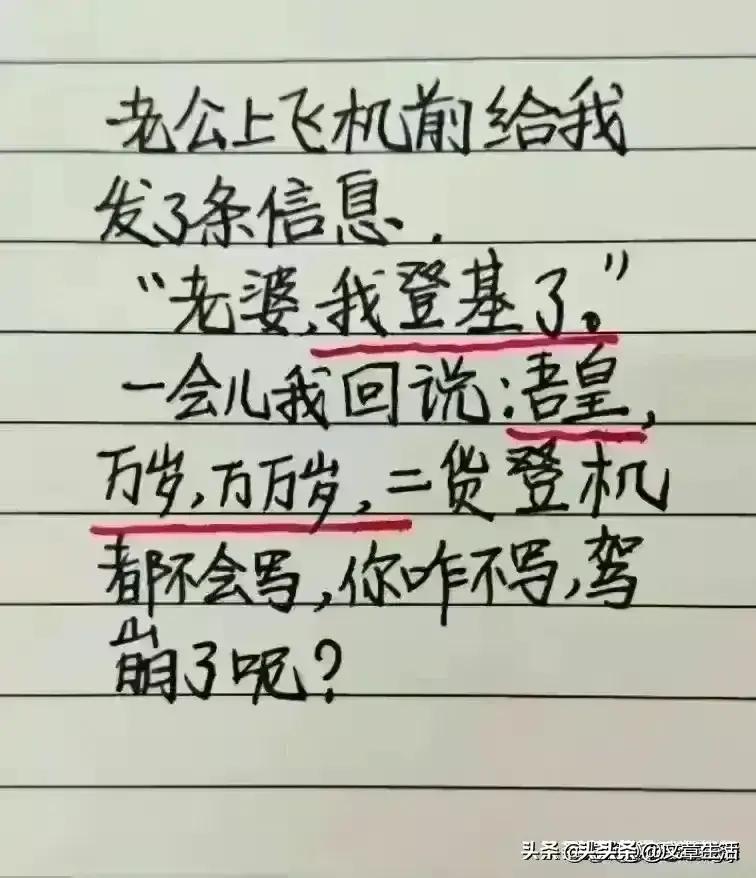 老公上飞机前给我
发了条信息.
“老婆,我登基了。”
一会儿我回说:吾皇,
万岁,万万岁,二货登机
都不会写,你咋不写,驾
崩了呢?
头条